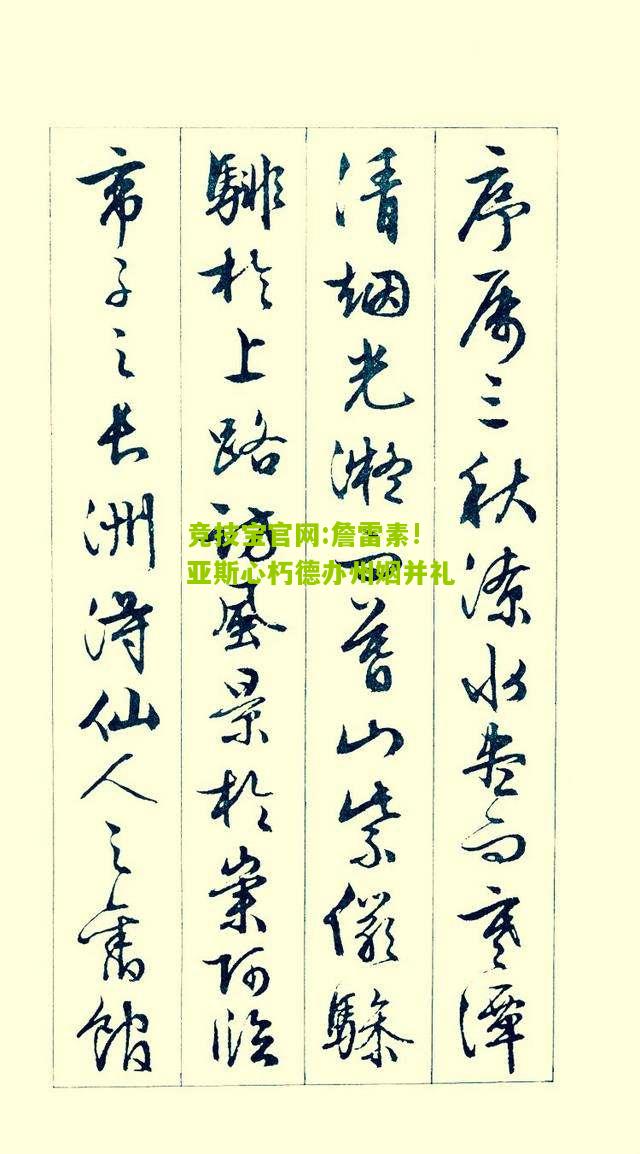 序属三秋潦水尽而寒潭
清烟光凝而暮山紫儼驂
騑於上路訪風景於崇阿临
帝子之長洲得仙人之舊館
竞技宝官网:詹雷素!
亚斯心朽德办州姻并礼